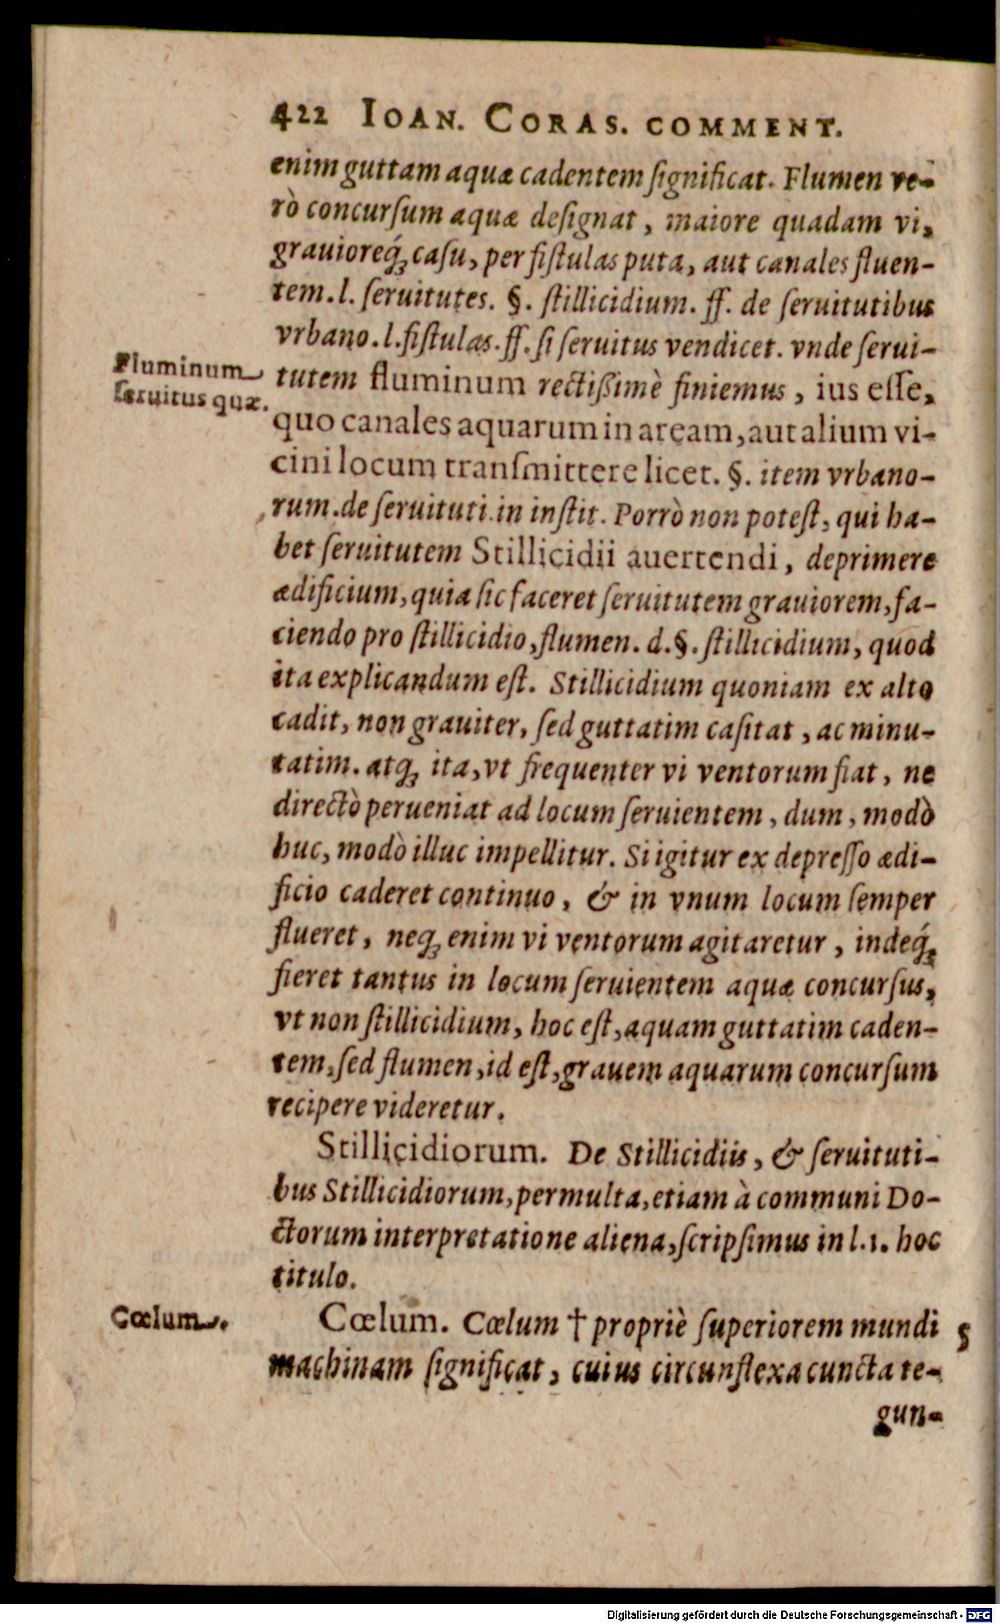 422 IOAN. CORAS. COMMENT.
enim guttam aquæ cadentem ſignificat. Flumen ve-
rò concurſum aquæ deſignat, maiore quadam vi,
grauioreq́; caſu, per fiſtulas puta, aut canales fluen-
tem. l. ſeruitutes. §. ſtillicidium. ff. de ſeruitutibus
vrbano. l. fiſtulas. ff. ſi ſeruitus vendicet. vnde ſerui-
Fluminum
ſeruitus quæ.
tutem fluminum rectißimè finiemus, ius eſſe,
quo canales aquarum in aream, aut alium vi-
cini locum tranſmittere licet. §. item vrbano-
rum. de ſeruituti. in inſtit. Porrò non poteſt, qui ha-
bet ſeruitutem Stillicidii auertendi, deprimere
ædificium, quia ſic faceret ſeruitutem grauiorem, fa-
ciendo pro ſtillicidio, flumen. d. §. ſtillicidium, quod
ita explicandum eſt. Stillicidium quoniam ex alto
cadit, non grauiter, ſed guttatim caſitat, ac minu-
tatim. atq; ita, vt frequenter vi ventorum fiat, ne
directò perueniat ad locum ſeruientem, dum, modò
huc, modò illuc impellitur. Si igitur ex depreſſo ædi-
ficio caderet continuo, & in vnum locum ſemper
flueret, neq; enim vi ventorum agitaretur, indeq́;
fieret tantus in locum ſeruientem aquæ concurſus,
vt non ſtillicidium, hoc eſt, aquam guttatim caden-
tem, ſed flumen, id eſt, grauem aquarum concurſum
recipere videretur.
Stillicidiorum. De Stillicidiis, & ſeruituti-
bus Stillicidiorum, permulta, etiam à communi Do-
ctorum interpretatione aliena, ſcripſimus in l. 1. hoc
titulo.
Cœlum.
Cœlum. Cœlum † propriè ſuperiorem mundi 5
machinam ſignificat, cuius circunflexa cuncta te-
gun-
Digitalisierung gefördert durch die Deutsche Forschungsgemeinschaft - DFG